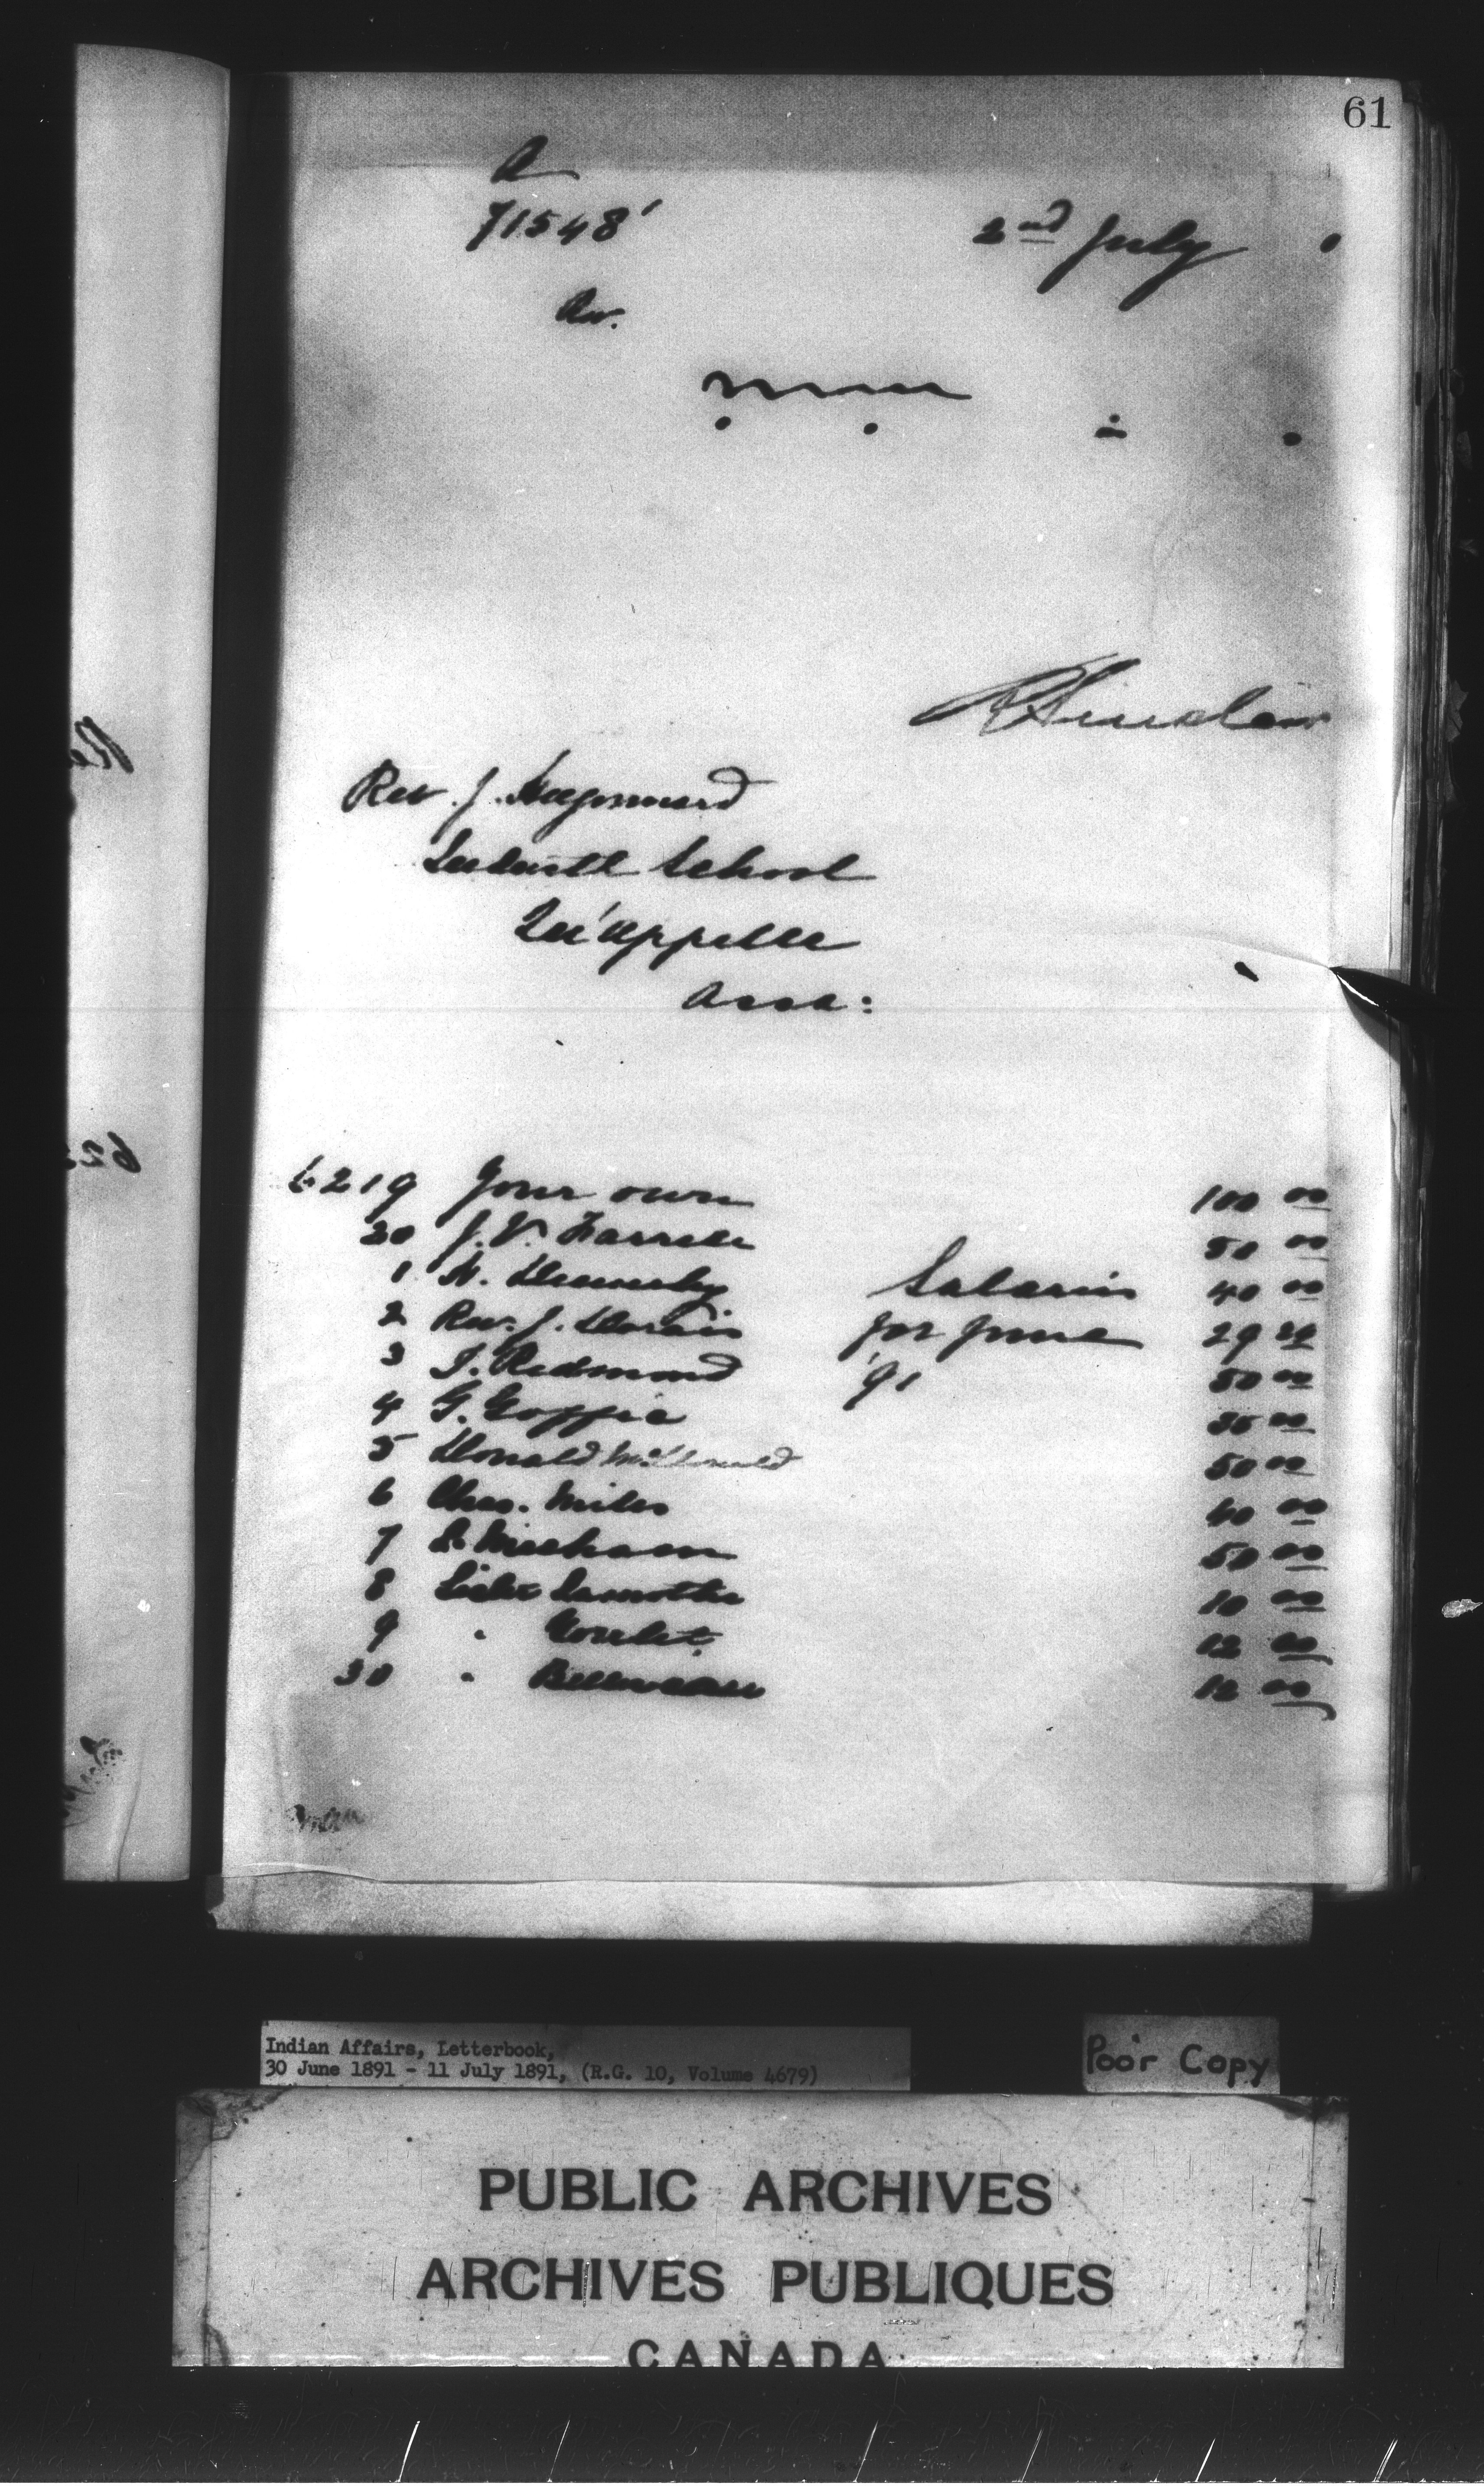 61
A
71548
2nd July 1
Rev.
R Sinclair
Rev. J. Hugonnard
Industl School
Qu'Appelle
Assa:
6219 Your own 100 00
20 J. V. 50 00
1 Salaries 40 00
2 Rev. J. for June 29
3 T. Redmond '91 50 00
4 G. 35 00
5 Donald McDonald 50 00
6 Chas. Miles 40 00
7 Meeham 50 00
8 Sister Lamothe 10 00
9 " Goulet 12 00
30 " 12 00
Indian Affairs, Letterbook,
30 June 1891 - 11 July 1891, (R.G. 10, Volume 4679)
Poor Copy
PUBLIC ARCHIVES
ARCHIVES PUBLIQUES
CANADA